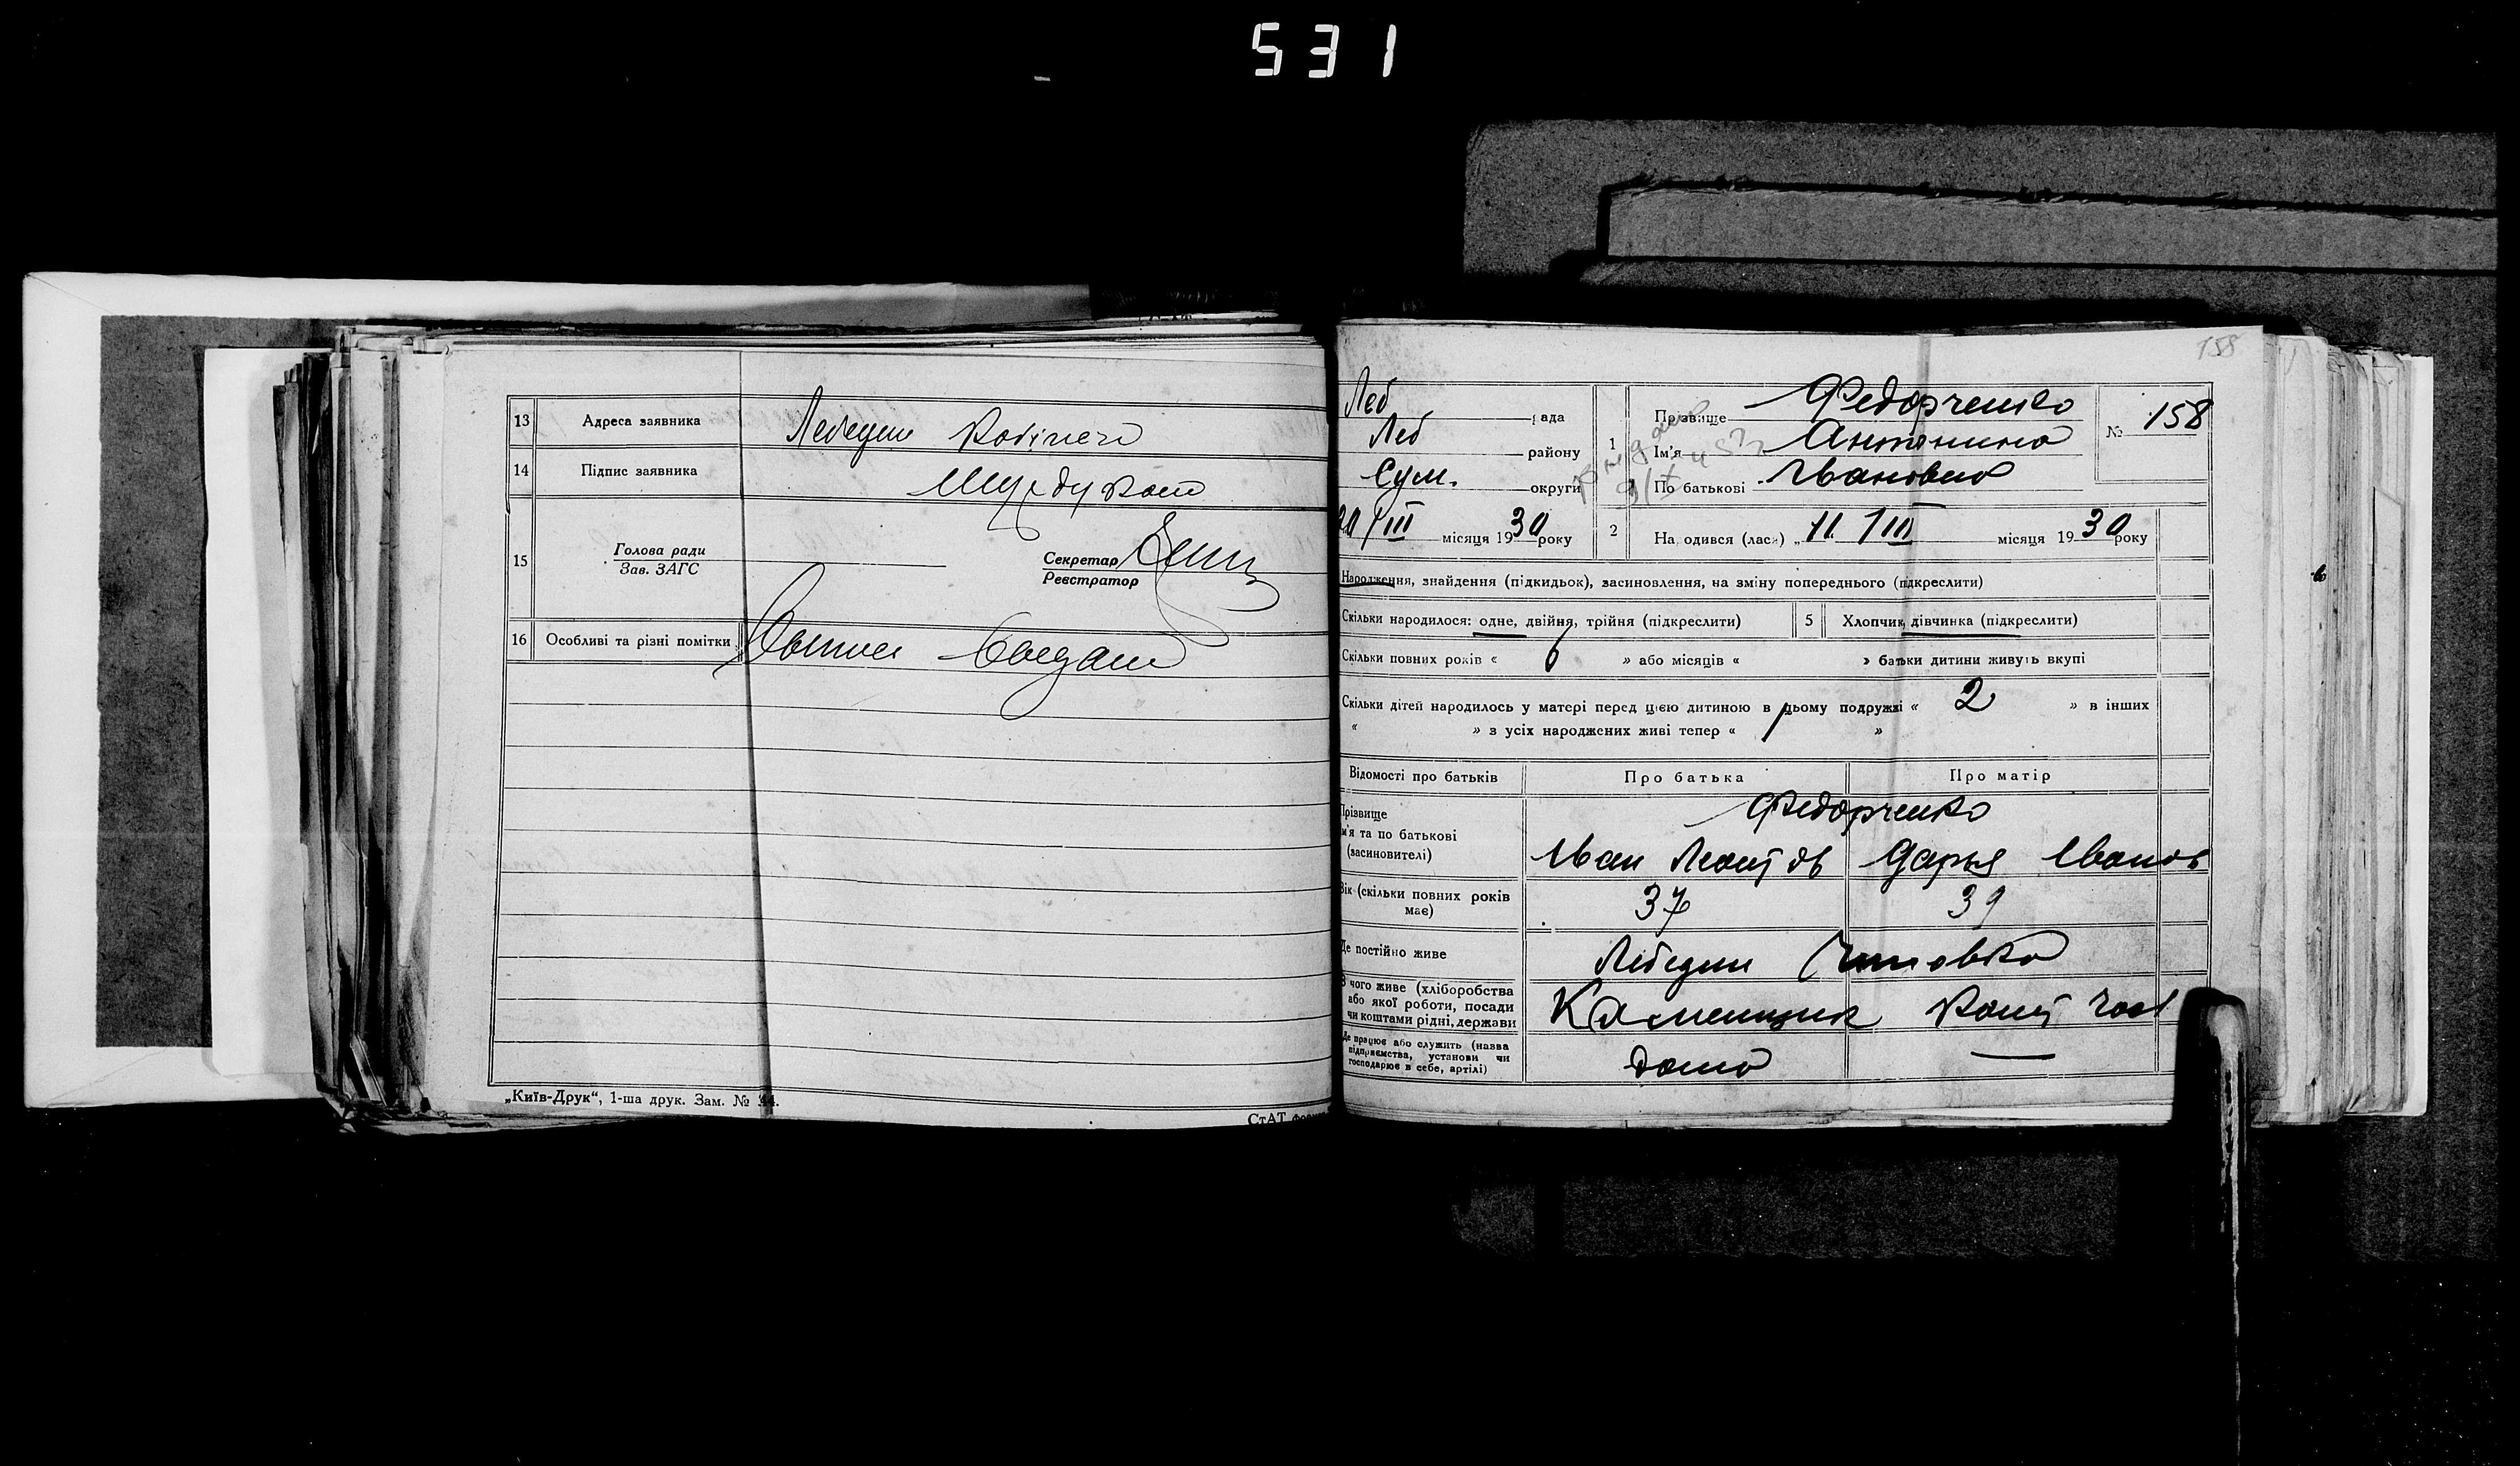 531
13 Адреса заявника Лебедин
14 Підпис заявника
15 Голова ради
Зав. ЗАГС
Секретар
Реєстратор
16 Особливі та різні помітки
„Київ-Друк“, 1-ша друк. Зам. №
СтАТ
158
Леб рада
Леб району
Сум. округи
20/III місяця 1930 року
1 Прізвище Федорченко
Ім'я Антонина
По батькові Ивановна
№ 158
2 На одився (лася) „ 11. III місяця 1930 року
Народження, знайдення (підкидьок), засиновлення, на зміну попереднього (підкреслити)
Скільки народилося: одне, двійня, трійня (підкреслити) 5 Хлопчик, дівчинка (підкреслити)
Скільки повних років « 6 » або місяців « » батьки дитини живуть вкупі
Скільки дітей народилось у матері перед цією дитиною в цьому подружжі « 2 » в інших
« » з усіх народжених живі тепер « »
Відомості про батьків Про батька Про матір
Прізвище Федорченко
м'я та по батькові
(засиновителі) Иван Дарья Иванов
Вік (скільки повних років
має) 37 39
Де постійно живе Лебедин
З чого живе (хліборобства
або якої роботи, посади
чи коштами рідні, держави Каменщик
Де працює або служить (назва
підприємства, установи чи
господарює в себе, артілі) дома —